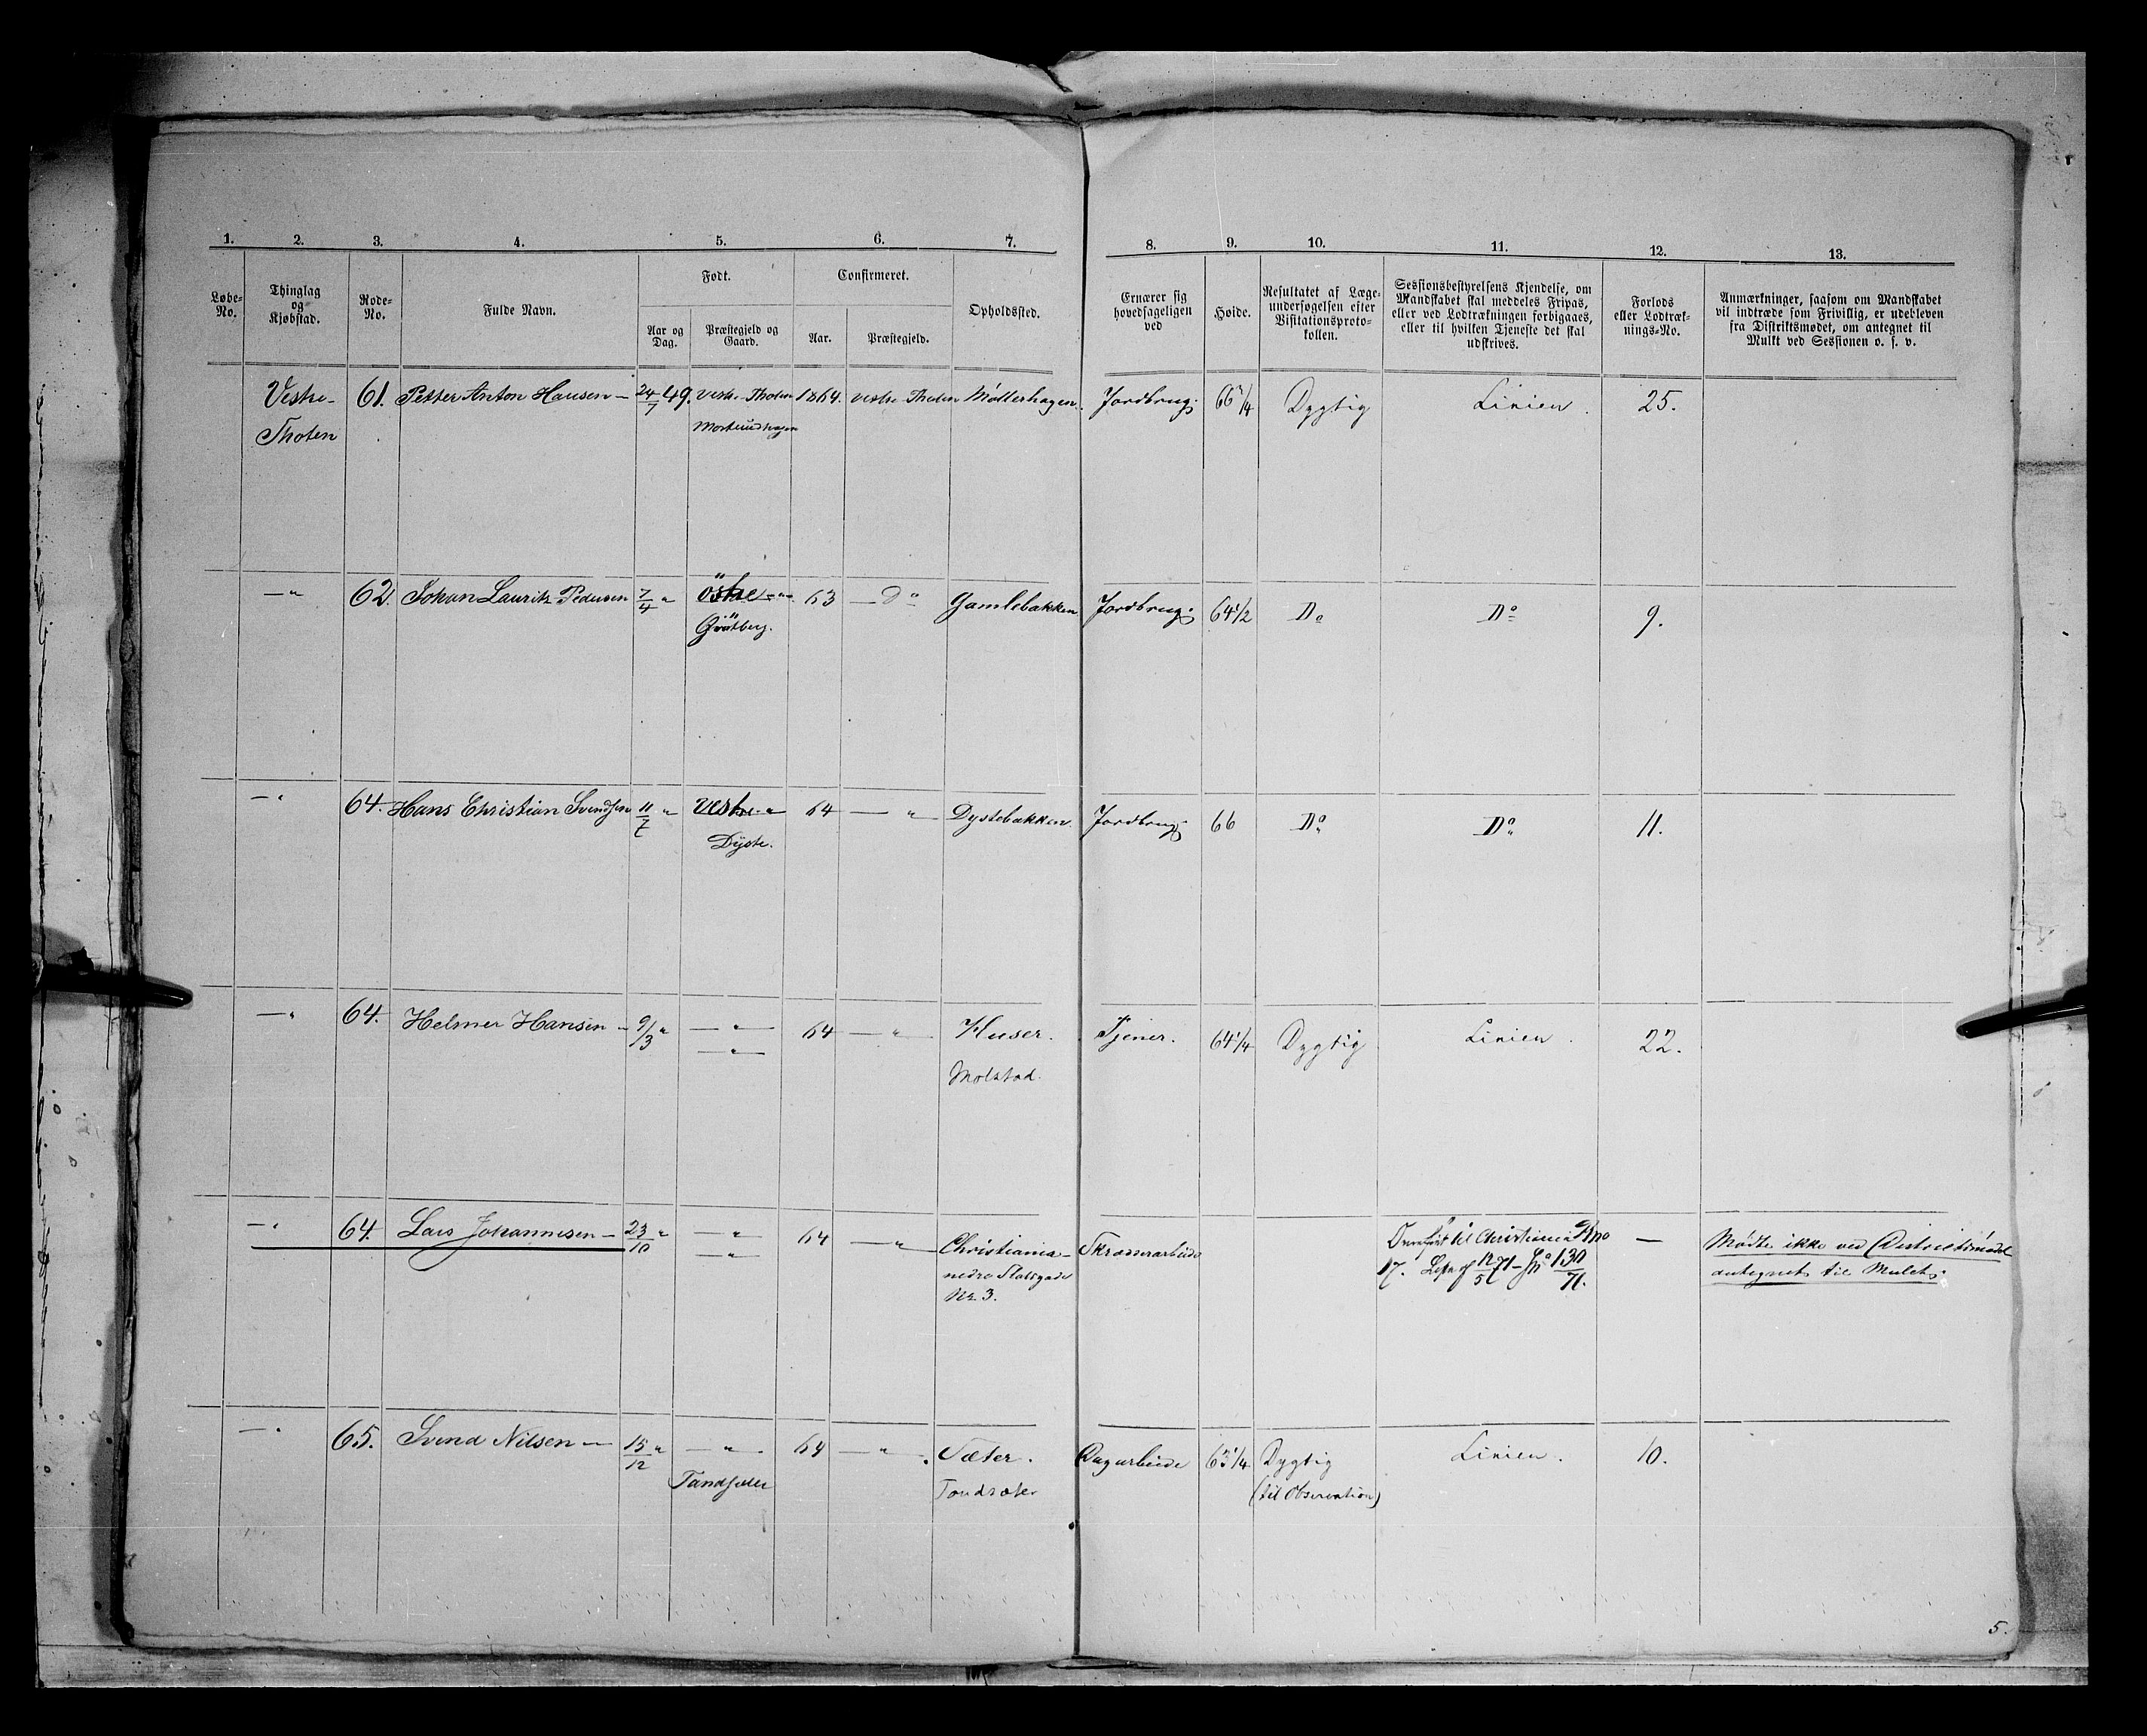 1. 2. 3. 4. 5. 6. 7. 8. 9. 10. 11. 12. 13.
Løbe-No.
Thinglag og Kjøbstad.
Rode-No.
Fulde Navn.
Født.
Aar og Dag.
Præstegjeld og Gaard.
Confirmeret.
Aar.
Præstegjeld.
Opholdssted.
Ernærer sig hovedsageligen ved
Høide.
Resultatet af Læge-undersøgelsen efter Visitationsproto-kollen.
Sessionsbestyrelsens Kjendelse, om Mandskabet skal meddeles Fripas, eller ved Lodtrækningen forbigaaes, eller til hvilken Tjeneste det skal udskrives.
Forlods eller Lodtræk-nings-No.
Anmærkninger, saasom om Mandskabet vil indtræde som Frivillig, er udebleven fra Distriktsmødet, om antegnet til Mulkt ved Sessionen o. s. v.
Vestre- 61. Petter Anton Hansen — 24/7 49. Vestre-Thoten 1864. vestre Thoten Møllerhagen. Jordbrug. 66 3/4 Dygtig Linien. 25.
Thoten
— " 62. Johan Laurits Pedersen 7/4 " östre — " 63 — Do Gamlebakken Jordbrug. 64 1/2 Do Do 9.
— " 64. Hans Christian Svendsen 11/7 " vestre " 64 — " — Dystebakken. Jordbrug. 66 Do Do 11.
Dyste.
— " 64. Helmer Hansen — 9/3 " — " — 64 — " — Huser. Tjener. 64 1/4 Dygtig Linien. 22.
— " — Molstad.
— " 64. Lars Johannesen — 23/10 " — " — 64 — " — Christiania — Skrædderarbeide Overført til Christiania Rno — Mødte ikke ved Districtsmødet
— " — nedre Slotsgade 17. 12/5 71 130/71. antegnet til Mulct.
Nr. 3.
— " 65. Svend Nilsen — 15/12 " — " — 64 — " — Sæter. Dagarbeide 63 1/4 Dygtig Linien. 10.
Tandsæter Tandsæter (til Observation)
5.